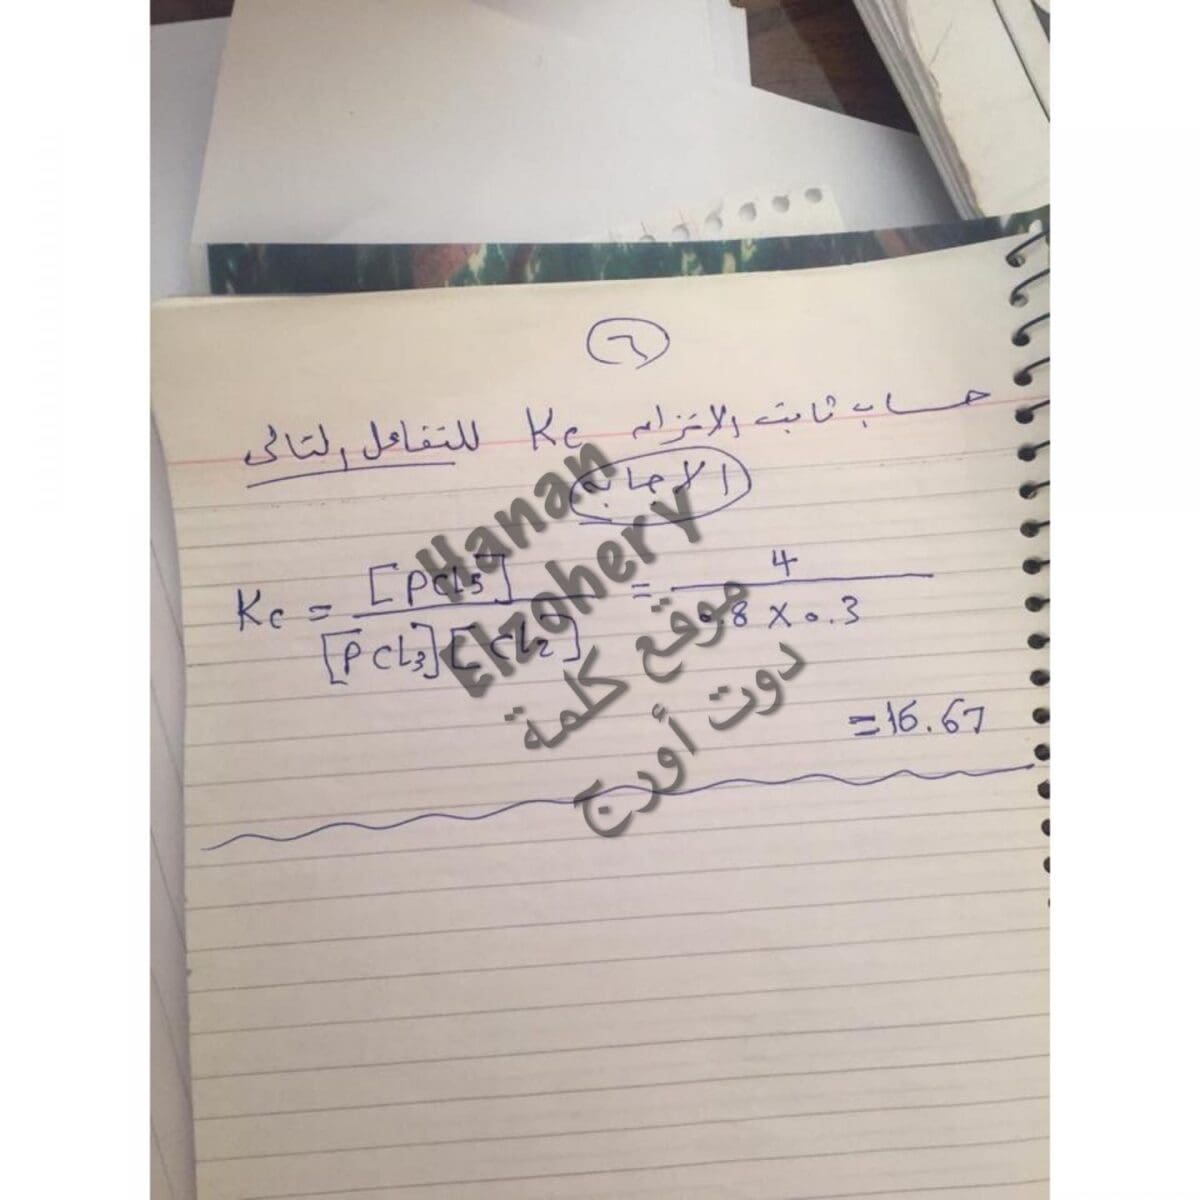 ٦
حساب ثابت الاتزان Kc للتفاعل التالى
الاجابة
Kc = [PCL5] / [PCL3][CL2] = 4 / 0.8 X 0.3
=16.67
Hanan
Elzohery
موقع كلمة
دوت أورج